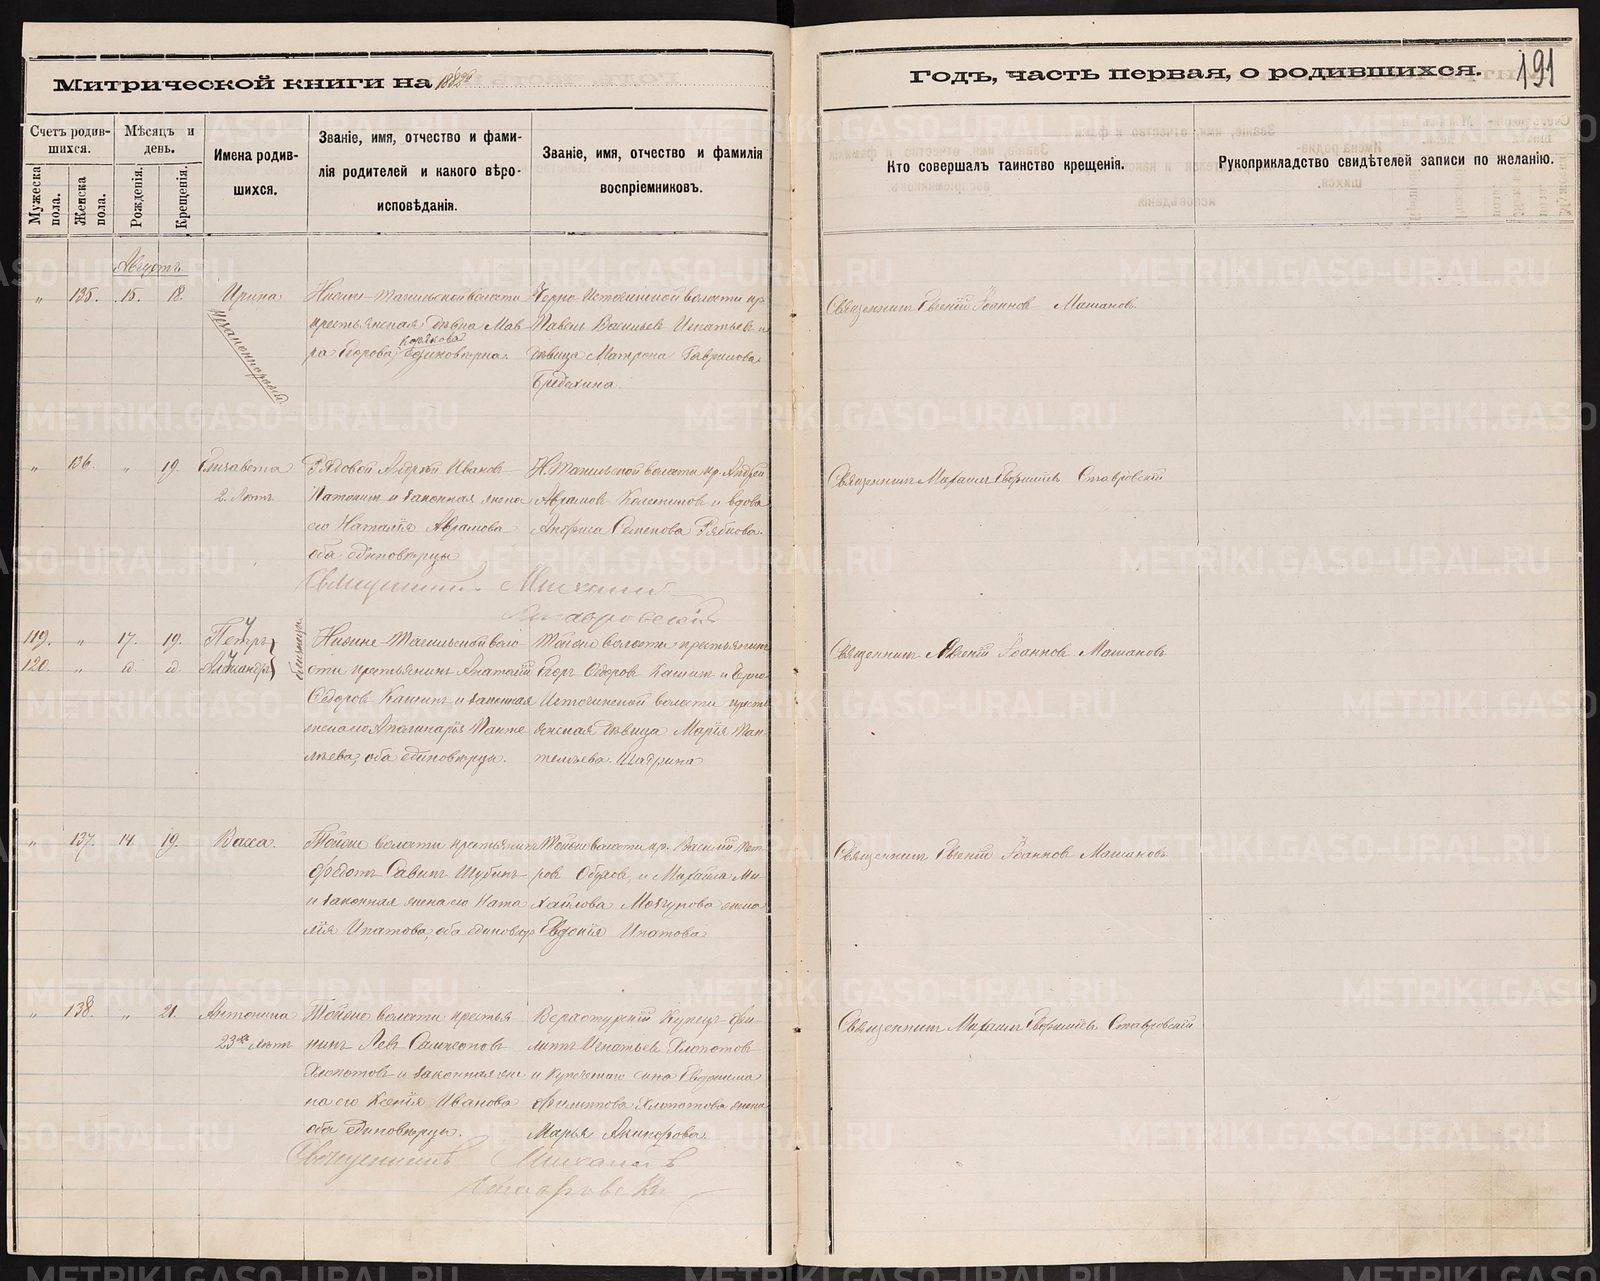 Митрической книги на 18
Годъ, часть первая, о родившихся.
191
Счетъ родив-
шихся.
Мѣсяцъ и
день.
Мужеска
пола.
Женска
пола.
Рожденія.
Крещенія.
Имена родив-
шихся.
Званіе, имя, отчество и фами-
лія родителей и какого вѣро-
исповѣданія.
Званіе, имя, отчество и фамилія
воспріемниковъ.
Кто совершалъ таинство крещенія.
Рукоприкладство свидѣтелей записи по желанію.
Августъ
" 135. 15. 18. Ирина
незаконнорожд
Нижне-Тагильской волости
крестьянская дѣвка Мав
Корякова
ра Егорова, единовѣрка.
Черно-Источинской волости кр.
Павелъ Васильевъ Игнатьевъ и
дѣвица Матрона Гаврилова
Священникъ Евгеній Іоанновъ Машановъ
" 136. " 19. Елизавета
2. лѣтъ
Рядовой Андрей Иванов
и законная жена
его Наталія Аврамова
оба единовѣрцы
Н. Тагильской волости кр. Андрей
Аврамовъ и вдова
Семенова Рябкова.
Священникъ Михаилъ
Ставровскій
Священникъ Михаилъ Ставровскій
119. " 17. 19. Петръ
120. " d d Александръ
близнецы
Нижне-Тагильской воло
сти крестьянинъ Анатолій
Ѳедоровъ Кашинъ и законная
жена его Аполинарія Панте
лѣева, оба единовѣрцы.
Той же волости крестьянинъ
Егоръ Ѳедоровъ Кашинъ и Черно
Источинской волости крест
янская дѣвица Марія Пан
телѣева Шадрина
Священникъ Евгеній Іоанновъ Машановъ
" 137. 14. 19. Васса
Той же волости крестьянинъ
Ѳедотъ Савинъ Шубинъ
и законная жена его Ната
лія Ипатова, оба единовѣр
Той же волости кр. Василій Пет
ровъ Обуховъ, и Михаила Ми
хайлова Мокурова жена
Евдокія Ипатова
Священникъ Евгеній Іоанновъ Машановъ
" 138. " 21. Антонина
23хъ лѣтъ
Той же волости кресть
нинъ Левъ Сампсоновъ
Хлопотовъ и законная же
на его Ксенія Иванова
оба единовѣрцы.
Верхотурскій купецъ Фи
липпъ Игнатьевъ Хлопотовъ
и купеческаго сына Евдокима
Филиппова Хлопотова жена
Марья Никифорова.
Священникъ Михаилъ
Ставровскій
Священникъ Михаилъ Ставровскій
METRIKI.GASO-URAL.RU